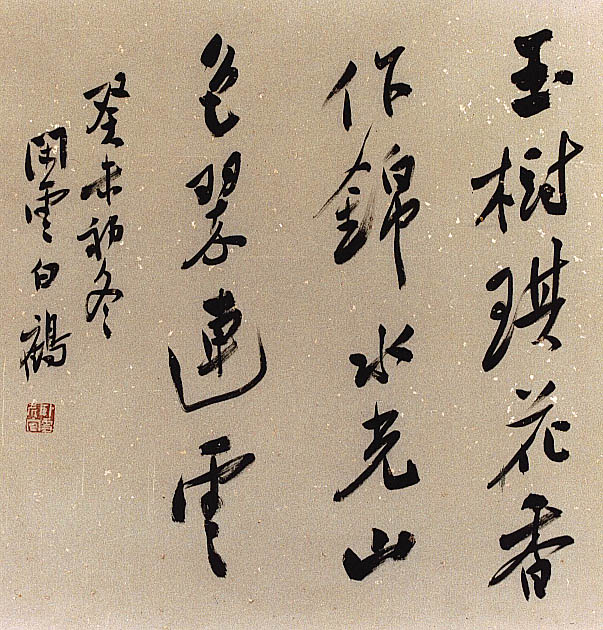 玉樹琪花香
作錦水光山
色翠連雲
癸未初冬
閑雲白鶴